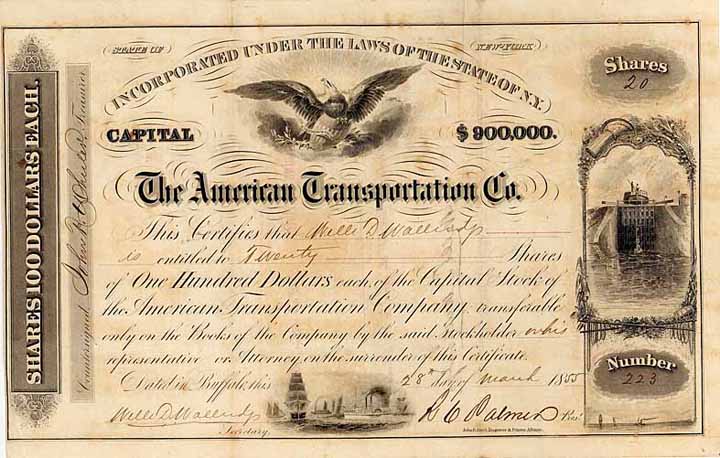 STATE OF NEW-YORK
INCORPORATED UNDER THE LAWS OF THE STATE OF N.Y.
CAPITAL $900,000.
The American Transportation Co.
Shares
20
SHARES 100 DOLLARS EACH.
Countersigned John R. Treasurer
This Certifies that Wells D Wallbridge
is entitled to Twenty Shares
of One Hundred Dollars each of the Capital Stock of
the American Transportation Company transferable
only on the Books of the Company by the said Stockholder or his
representative or Attorney, on the surrender of this Certificate.
Dated in Buffalo this 28th day of March 1855
Wells D Wallbridge
Secretary.
Pres't
Number
223